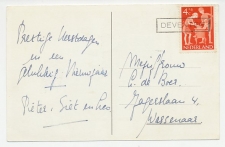 Prettige Kerstdagen
in een
gelukkig Nieuwjaar
Pieter, Siet en
DEVE
4+4
NEDERLAND
Mej. Vrouw
C. de Boer
Jagerslaan 4
Wassenaar